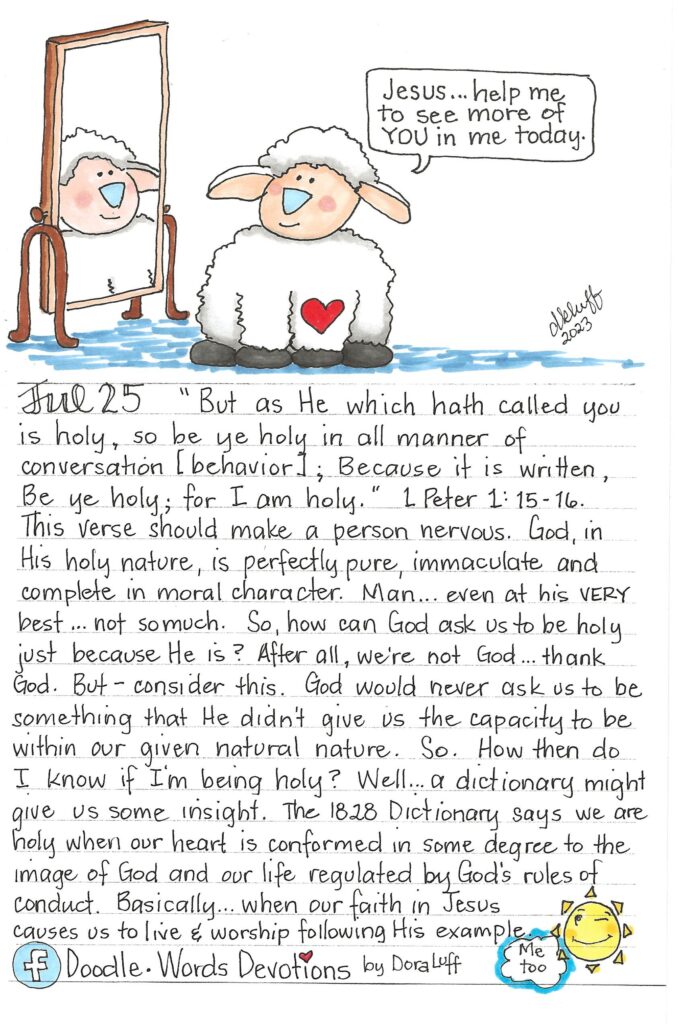 Jesus... help me
to see more of
YOU in me today.
dkluff
2023
Jul 25 "But as He which hath called you
is holy, so be ye holy in all manner of
conversation [behavior]; Because it is written,
Be ye holy; for I am holy." 1 Peter 1:15-16.
This verse should make a person nervous. God, in
His holy nature, is perfectly pure, immaculate and
complete in moral character. Man... even at his VERY
best... not so much. So, how can God ask us to be holy
just because He is? After all, we're not God... thank
God. But - consider this. God would never ask us to be
something that He didn't give us the capacity to be
within our given natural nature. So. How then do
I know if I'm being holy? Well... a dictionary might
give us some insight. The 1828 Dictionary says we are
holy when our heart is conformed in some degree to the
image of God and our life regulated by God's rules of
conduct. Basically... when our faith in Jesus
causes us to live & worship following His example.
Me
too
f Doodle. Words Devotions by Dora Luff